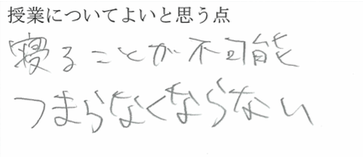 授業についてよいと思う点
寝ることが不可能
つまらなくならない